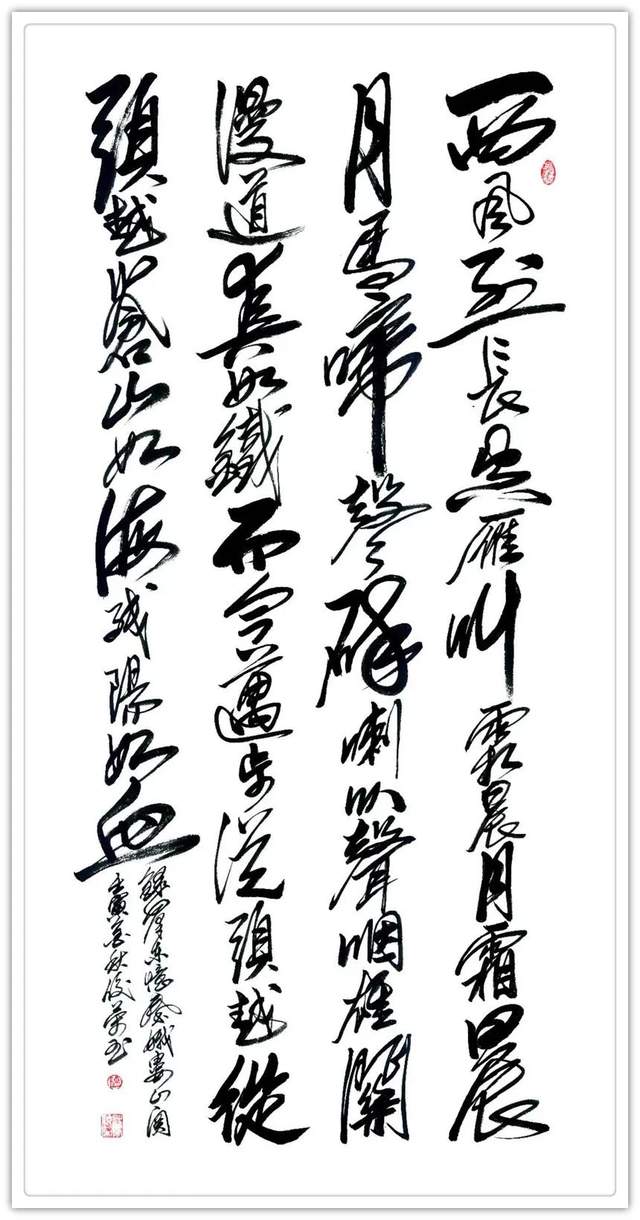 西風烈長空雁叫霜晨月霜晨
月馬啼聲碎喇叭聲咽雄關
漫道真如鐵而今邁步從頭越從
頭越蒼山如海残陽如血
錄澤东憶秦娥婁山関
壬寅秋俊荣书